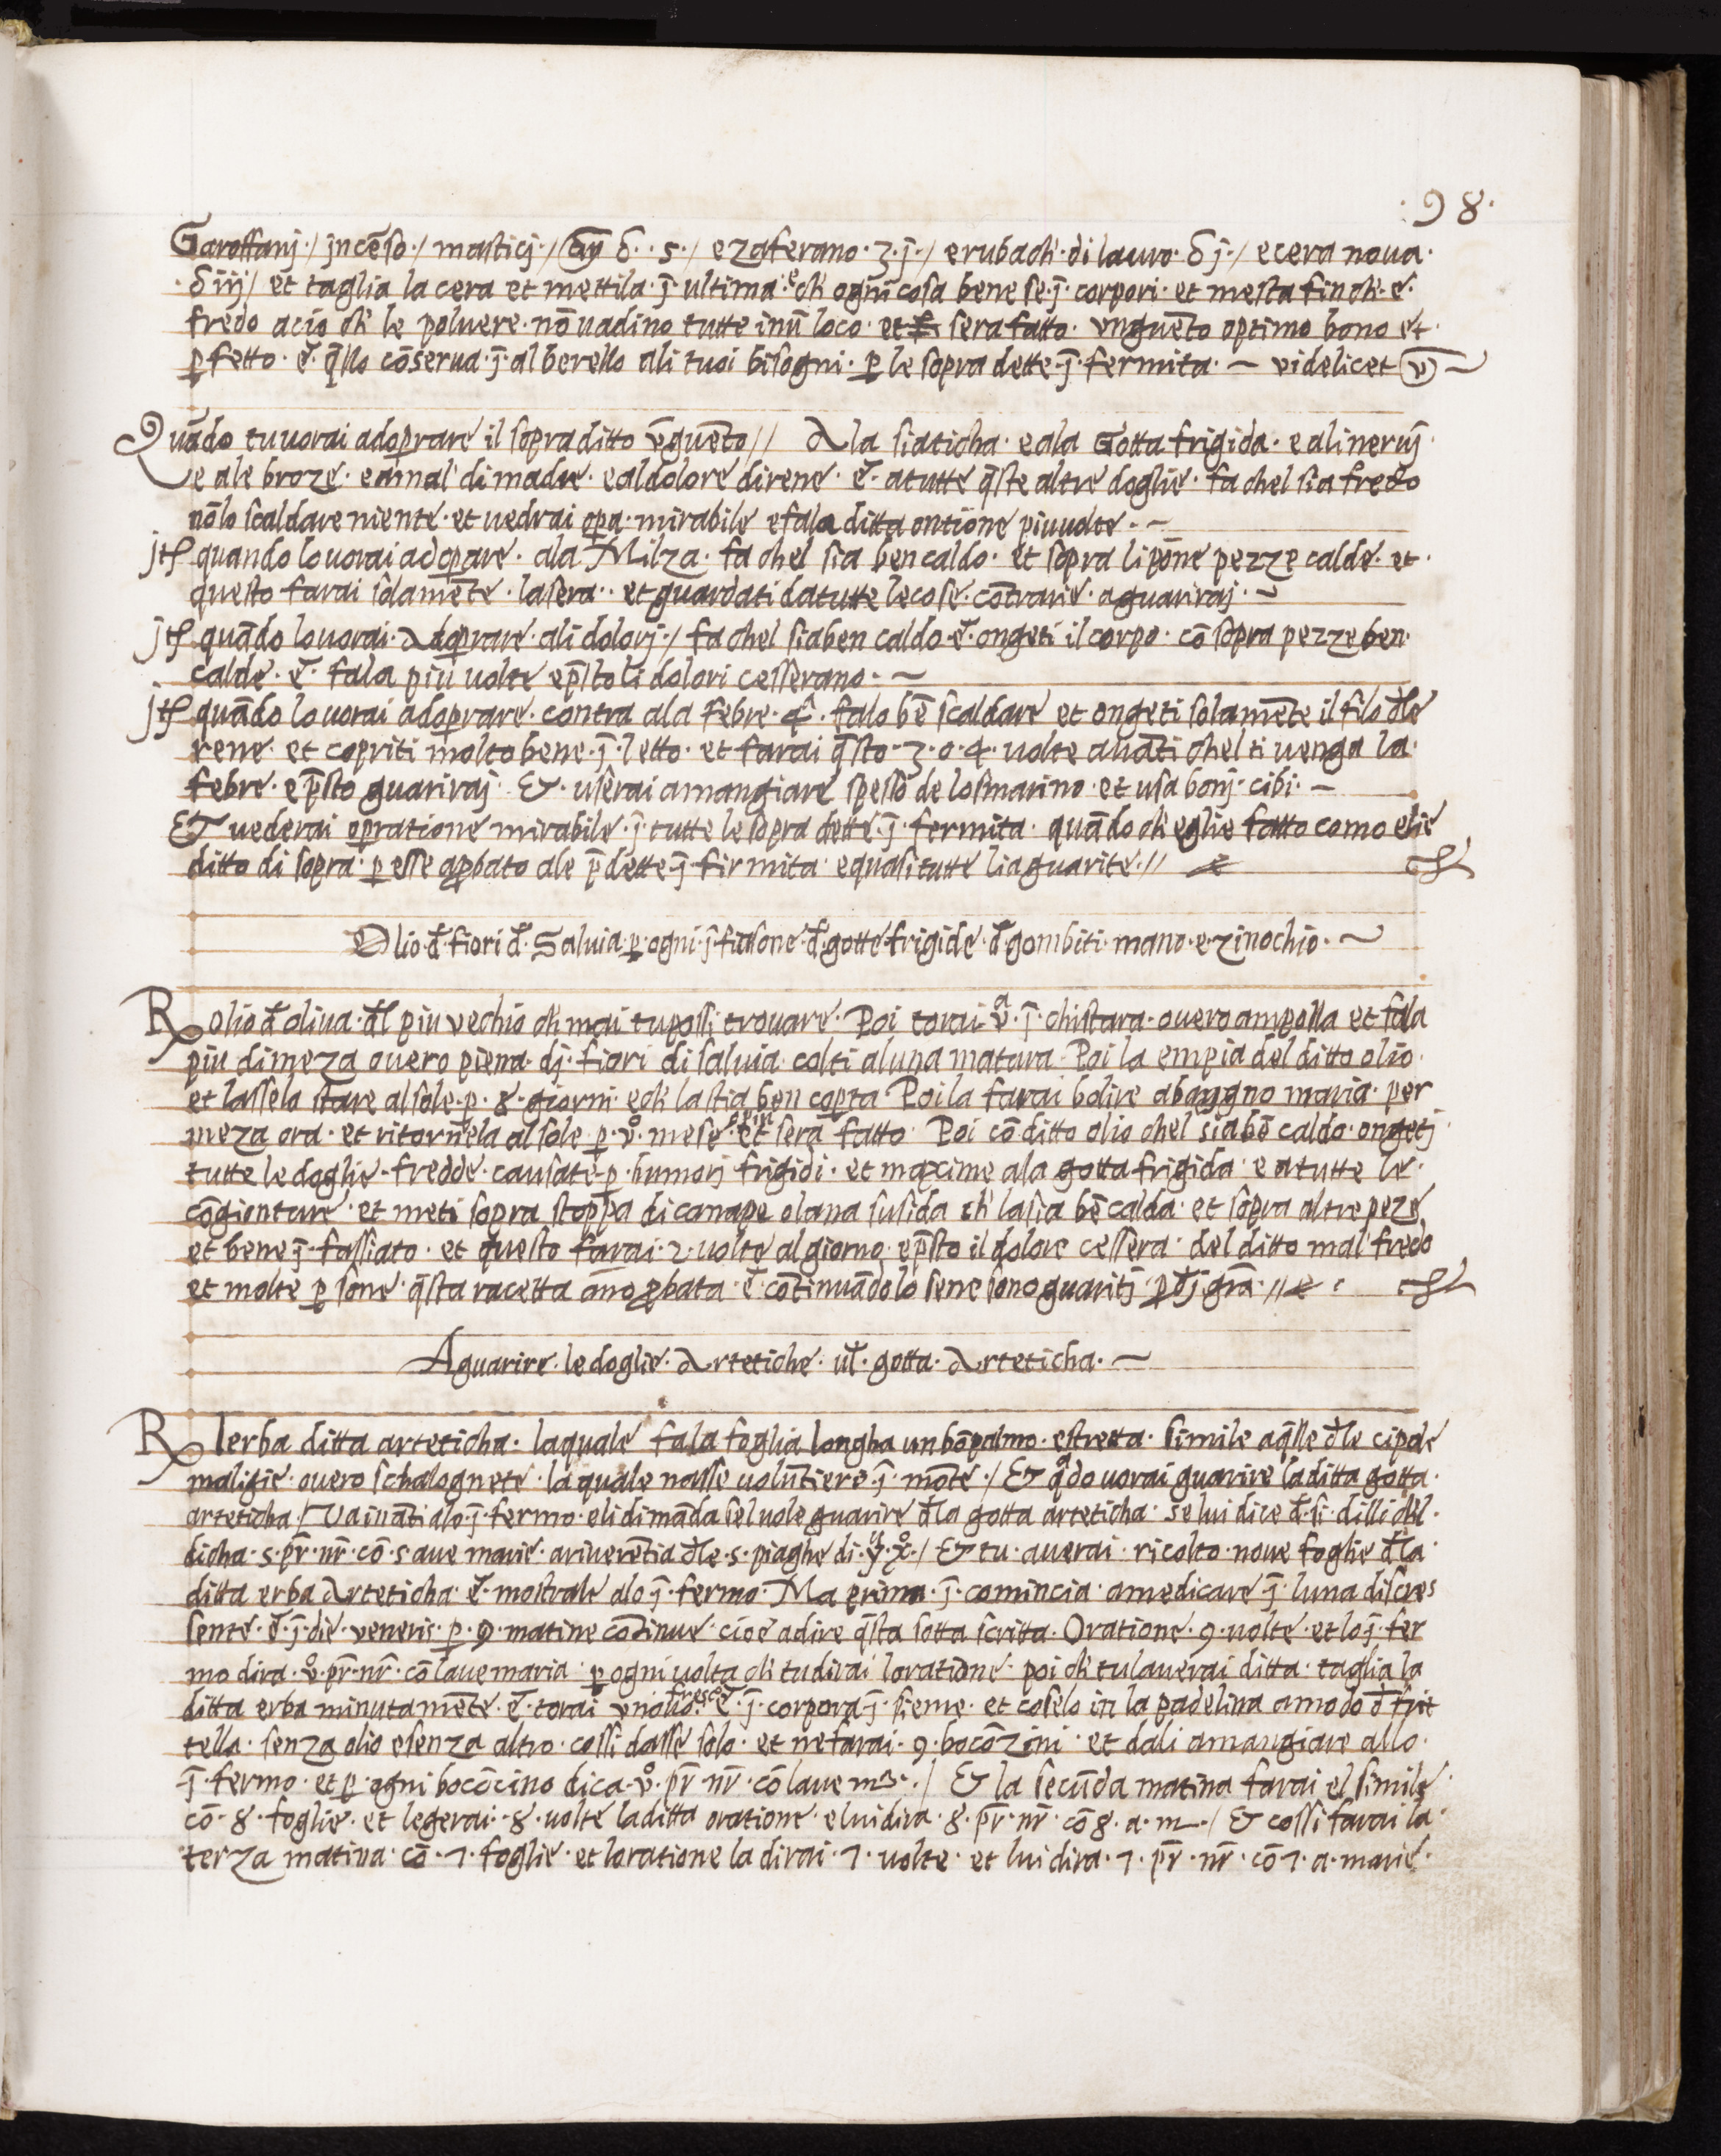 ·98·
Garoffanj ·/ jncēso ·/ masticj ·/ āη δ · 5 ·/ e zaferano · 3 · j ·/ e rubach' di lauro · δ j ·/ e cera noua ·
· δ iij / et taglia la cera et mettila · j̄ · ultima · e ch' ogni cosa bene se · j̄ · corpori · et mesta fin ch' · e' ·
fredo acio ch' le poluere · nō uadino tutte in ū loco · et sera fatto · vnguēto optimo bono et ·
ꝑfetto · e' · q̄llo cōserua · j̄ · alberello ali tuoi bisogni · ꝑ le sopra dette · j̄ · fermita · ~ videlicet v̄ ~
Quādo tu uorai adoprare il sopra ditto v̄guēto // Ala siaticha · e ala Gotta frigida · e ali neruj ·
e ale broze · e a mal' di madre · e al dolore di rene · e' · a tutte q̄ste altre doglie · fa chel sia fredo
nō lo scaldare niente · et uedrai opa · mirabile e fa la ditta ontione piu uolte · ~
jtꝭ quando lo uorai adoprare · ala Milza · fa chel sia ben caldo · et sopra li pōne pezze calde · et ·
questo farai solamēte · la sera · · et guardati da tutte le cose · cōtrarie · a guarirai · ~
jtꝭ quādo lo uorai · Adoprare · ali dolorj ·/ fa chel sia ben caldo · e' · ongeti il corpo · cō sopra pezze ben ·
calde · e' · fala piu uolte e p̄sto li dolori cesserano · ~
jtꝭ quādo lo uorai adoprare · contra ala febre · 4ª · falo bē scaldare et ongeti solamēte il filo dłe
rene · et copriti molto bene · j̄ · letto · et farai q̄sto · 3 · o · 4 · uolte auāti chel ti uenga la ·
febre · e p̄sto guariraj · Et · userai a mangiare spesso de losmarino · et usa bonj · cibi · ~
Et uederai opratione mirabile · j̄ · tutte le sopra dette · j̄ · fermita · quādo ch' eglie fatto como elie
ditto di sopra · ꝑ esse aꝓbato ale p̄dette · j̄ · firmita · e quasi tutte li a guarite · //
Olio · đ · fiori đ · Saluia · ꝑ · ogni · j̄ · fiasone · đ · gotte frigide · đ · gombiti · mano · e zinochio · ~
℞ olio đ oliua · đl piu vechio ch' mai tu possi trouare · Poi torai · v̄ª · j̄ · chistara · ouero ampolla et fala
piu di meza ouero piena · dj · fiori di saluia · colti a luna matura · Poi la empia del ditto olio ·
et lassela stare al sole · p · 8 · giorni · e ch' la stia ben coꝑta · Poi la farai bolire a bangno maria · per
meza ora · et ritornela al sole · p · v̊ · mese · o piu · et sera fatto · Poi cō ditto olio chel sia bē caldo · ongetj ·
tutte le doglie · fredde · causate · p · humorj frigidi · et maxime ala gotta frigida · e a tutte le ·
cōgionture · et meti sopra stoppa di canape o lana susida ch' la sia bē calda · et sopra altre peze
et bene · j̄ · fassiato · et questo farai · 2 · uolte al giorno · e p̄sto il dolore cessera · del ditto mal' fredo
et molte ꝑsone · q̄sta racetta āno ꝓbata · e' · cōtinuādolo sene sono guaritj · ꝑ dj grā · //
A guarire · le doglie · Artetiche · uł · gotta · Arteticha · ~
℞ lerba ditta arteticha · la quale fa la foglia longha un bō palmo · e stretta · simile a q̄lle dłe cipole
maligie · ouero schalognete · la quale nasse uolūtiere · j̄ · mōte ·/ Et qªdo uorai guarire la ditta gotta ·
arteticha / Vaināti alo · j̄ · fermo · e li dimāda sel uole guarire dła gotta arteticha · se lui dice đ · si · dilli chel ·
dicha · 5 · pr̄ · nr̄ · cō · 5 aue marie · a riuerētia dłe · 5 · piaghe di · y̆ · x̊ ·/ Et tu · auerai · ricolto · noue foglie dła ·
ditta erba Arteticha · e' · mostrale alo · j̄ · fermo · Ma prima · j̄ · comincia · a medicare · j̄ · luna discres
sente · e' · j̄ · die · veneris · p · 9 · matine cōtinue · cioe a dire q̄sta sotta scritta · Oratione · 9 · uolte · et lo j̄ · fer
mo dira · v̊ · pr̄ · nr̄ · cō laue maria · ꝑ ogni uolta ch' tu dirai loratione · poi ch' tu lauerai ditta · taglia la
ditta erba minutamēte · e' · torai vno uo · fresco · e' · j̄ · corpora · j̄ · sieme · et coselo in la padelina a modo đ frit
tella · senza olio e senza altro · cossi dasse solo · et ne farai · 9 · bocōzini · et dali a mangiare allo ·
j̄ · fermo · et ꝑ · ogni bocōcino dica · v̊ · pr̄ · nr̄ · cō laue mª ·/ Et la secūda matina farai el simile ·
cō · 8 · foglie · et legerai · 8 · uolte la ditta oratione · e lui dira · 8 · pr̄ · nr̄ · cō 8 · a · m ·/ Et cossi farai la ·
terza matina · cō · 7 · foglie · et loratione la dirai · 7 · uolte · et lui dira · 7 · pr̄ · nr̄ · cō 7 · a · marie ·